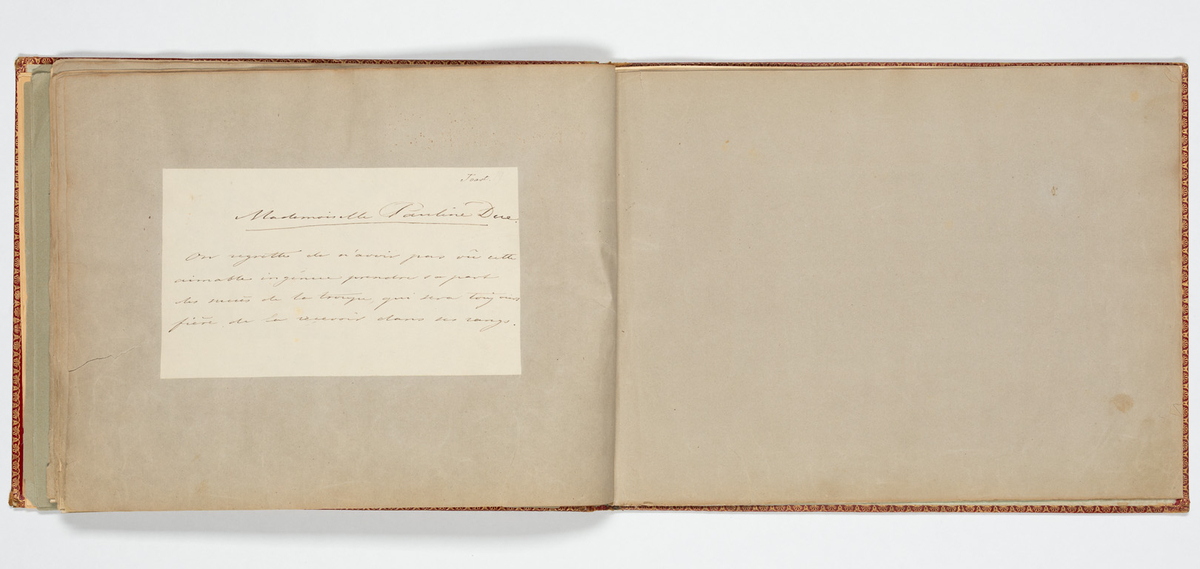 Mademoiselle Pauline Dere.
On regrette de n'avoir pas vû cette
aimable ingénue prendre sa part
des succès de la troupe, qui sera toujours
fière de la recevoir dans ses rangs.